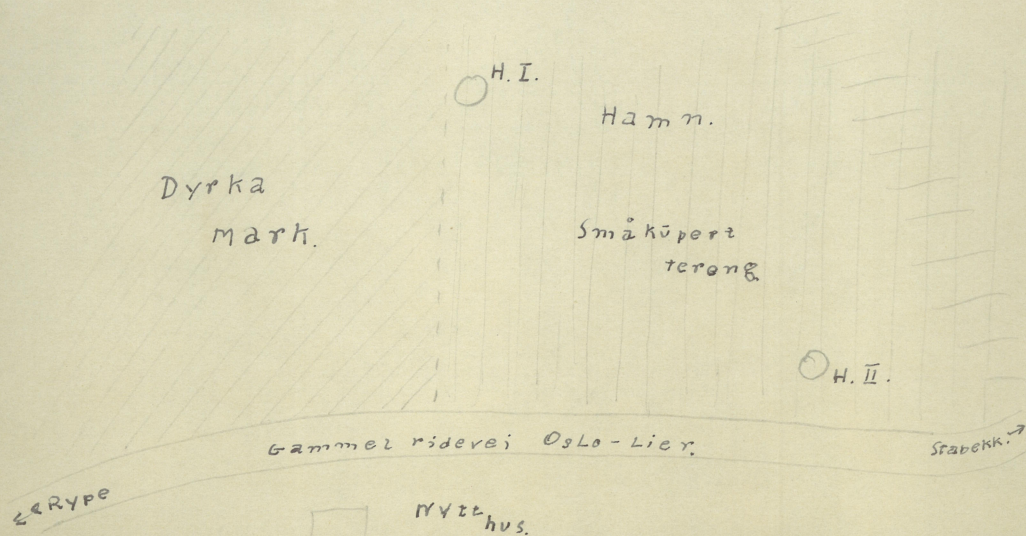 H. I.
Hamn.
Dyrka
mark.
Småkūpert
tereng
H. II.
Gammel ridevei Oslo - Lier.
Stabekk.
Rype
Nytt
hus.